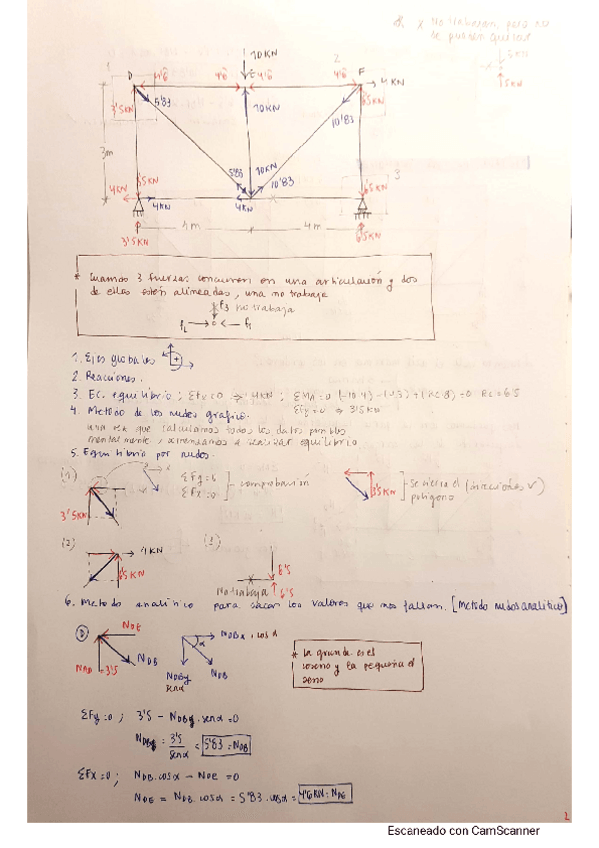 10KN
2
D
4'6
4'6
4'6
4'6
F
4KN
5'83
3'5KN
10KN
10'83
6'5KN
3m
5'83
10KN
10'83
3
4KN
3'5KN
4KN
4KN
6'5KN
3'5KN
4m
4m
6'5KN
* Cuando 3 fuerzas concurren en una articulación y dos
de ellas están alineadas, una no trabaja
F3 no trabaja
F2
F1
1. Ejes globales
2. Reacciones.
3. Ec. equilibrio; ΣFx=0 ⇒ 4KN; ΣMA=0
ΣFy=0 ⇒ 3'5KN
4. Metodo de los nudos grafico.
una vez que calculamos todos los datos posibles
mentalmente, comenzamos a realizar equilibrio
5. Equilibrio por nudos.
(1)
ΣFy=0
ΣFx=0
comprobación
3'5KN
3'5KN
Se cierra el (direcciones ✓)
poligono
(2)
4KN
6'5KN
(3)
6'5
No trabaja
6'5
6. Metodo analitico para sacar los valores que nos faltan. [Metodo nudos analitico]
D
NDE
NDB
NAD=3'5
NDBx · cos α
α
NDBy
sen α
NDB
* La grande es el
coseno y la pequeña el
seno
ΣFy=0; 3'5 - NDBy·sen α=0
NDBy = 3'5 / sen α = 5'83 = NDB
ΣFx=0; NDB·cos α - NDE = 0
NDE = NDB·cos α = 5'83·cos α = 4'6 KN = NDE
2
Escaneado con CamScanner